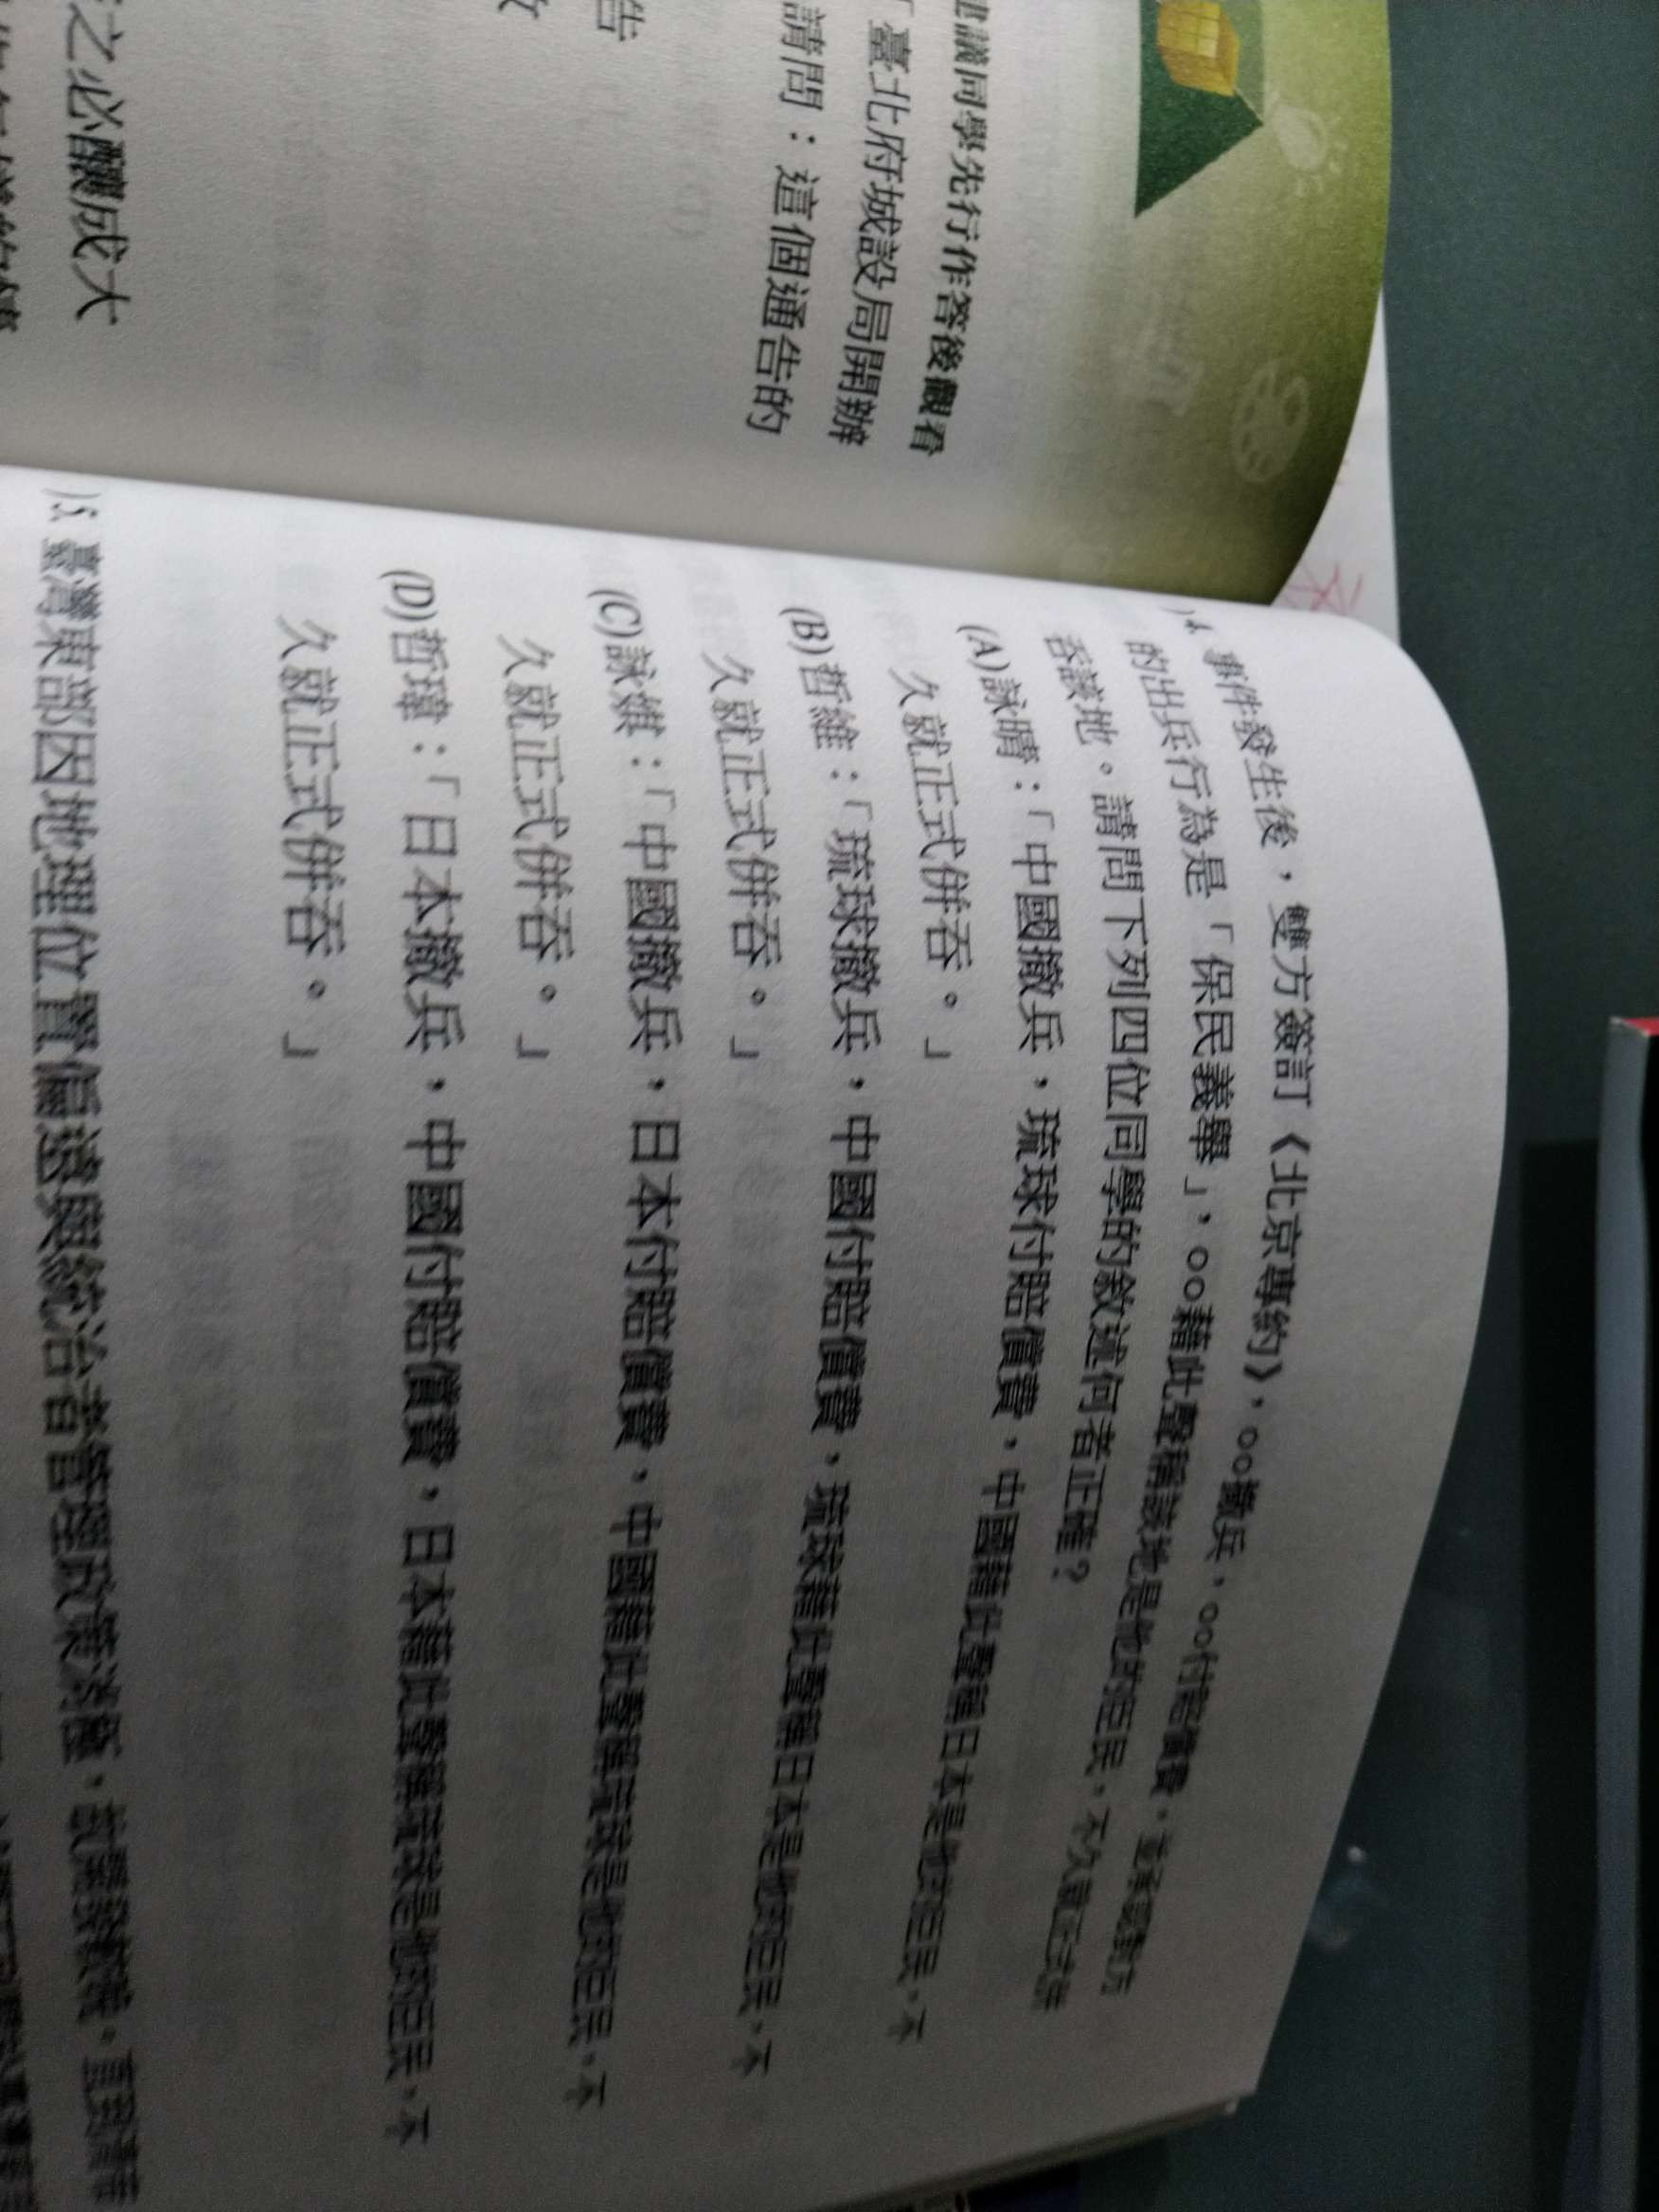 建議同學先行作答後觀看
「臺北府城設局開辦
請問：這個通告的
告
之必釀成大
)4. 事件發生後，雙方簽訂《北京專約》，oo撤兵，oo付賠償費，並承認對方
的出兵行為是「保民義舉」，oo藉此聲稱該地是他的臣民，不久就正式併
吞該地。請問下列四位同學的敘述何者正確？
(A)詠晴：「中國撤兵，琉球付賠償費，中國藉此聲稱日本是他的臣民，不
久就正式併吞。」
(B)哲維：「琉球撤兵，中國付賠償費，琉球藉此聲稱日本是他的臣民，不
久就正式併吞。」
(C)詠媸：「中國撤兵，日本付賠償費，中國藉此聲稱琉球是他的臣民，不
久就正式併吞。」
(D)哲瑋：「日本撤兵，中國付賠償費，日本藉此聲稱琉球是他的臣民，不
久就正式併吞。」
)5. 臺灣東部因地理位置偏遠與統治者管理政策消極，故開發較晚。直到清